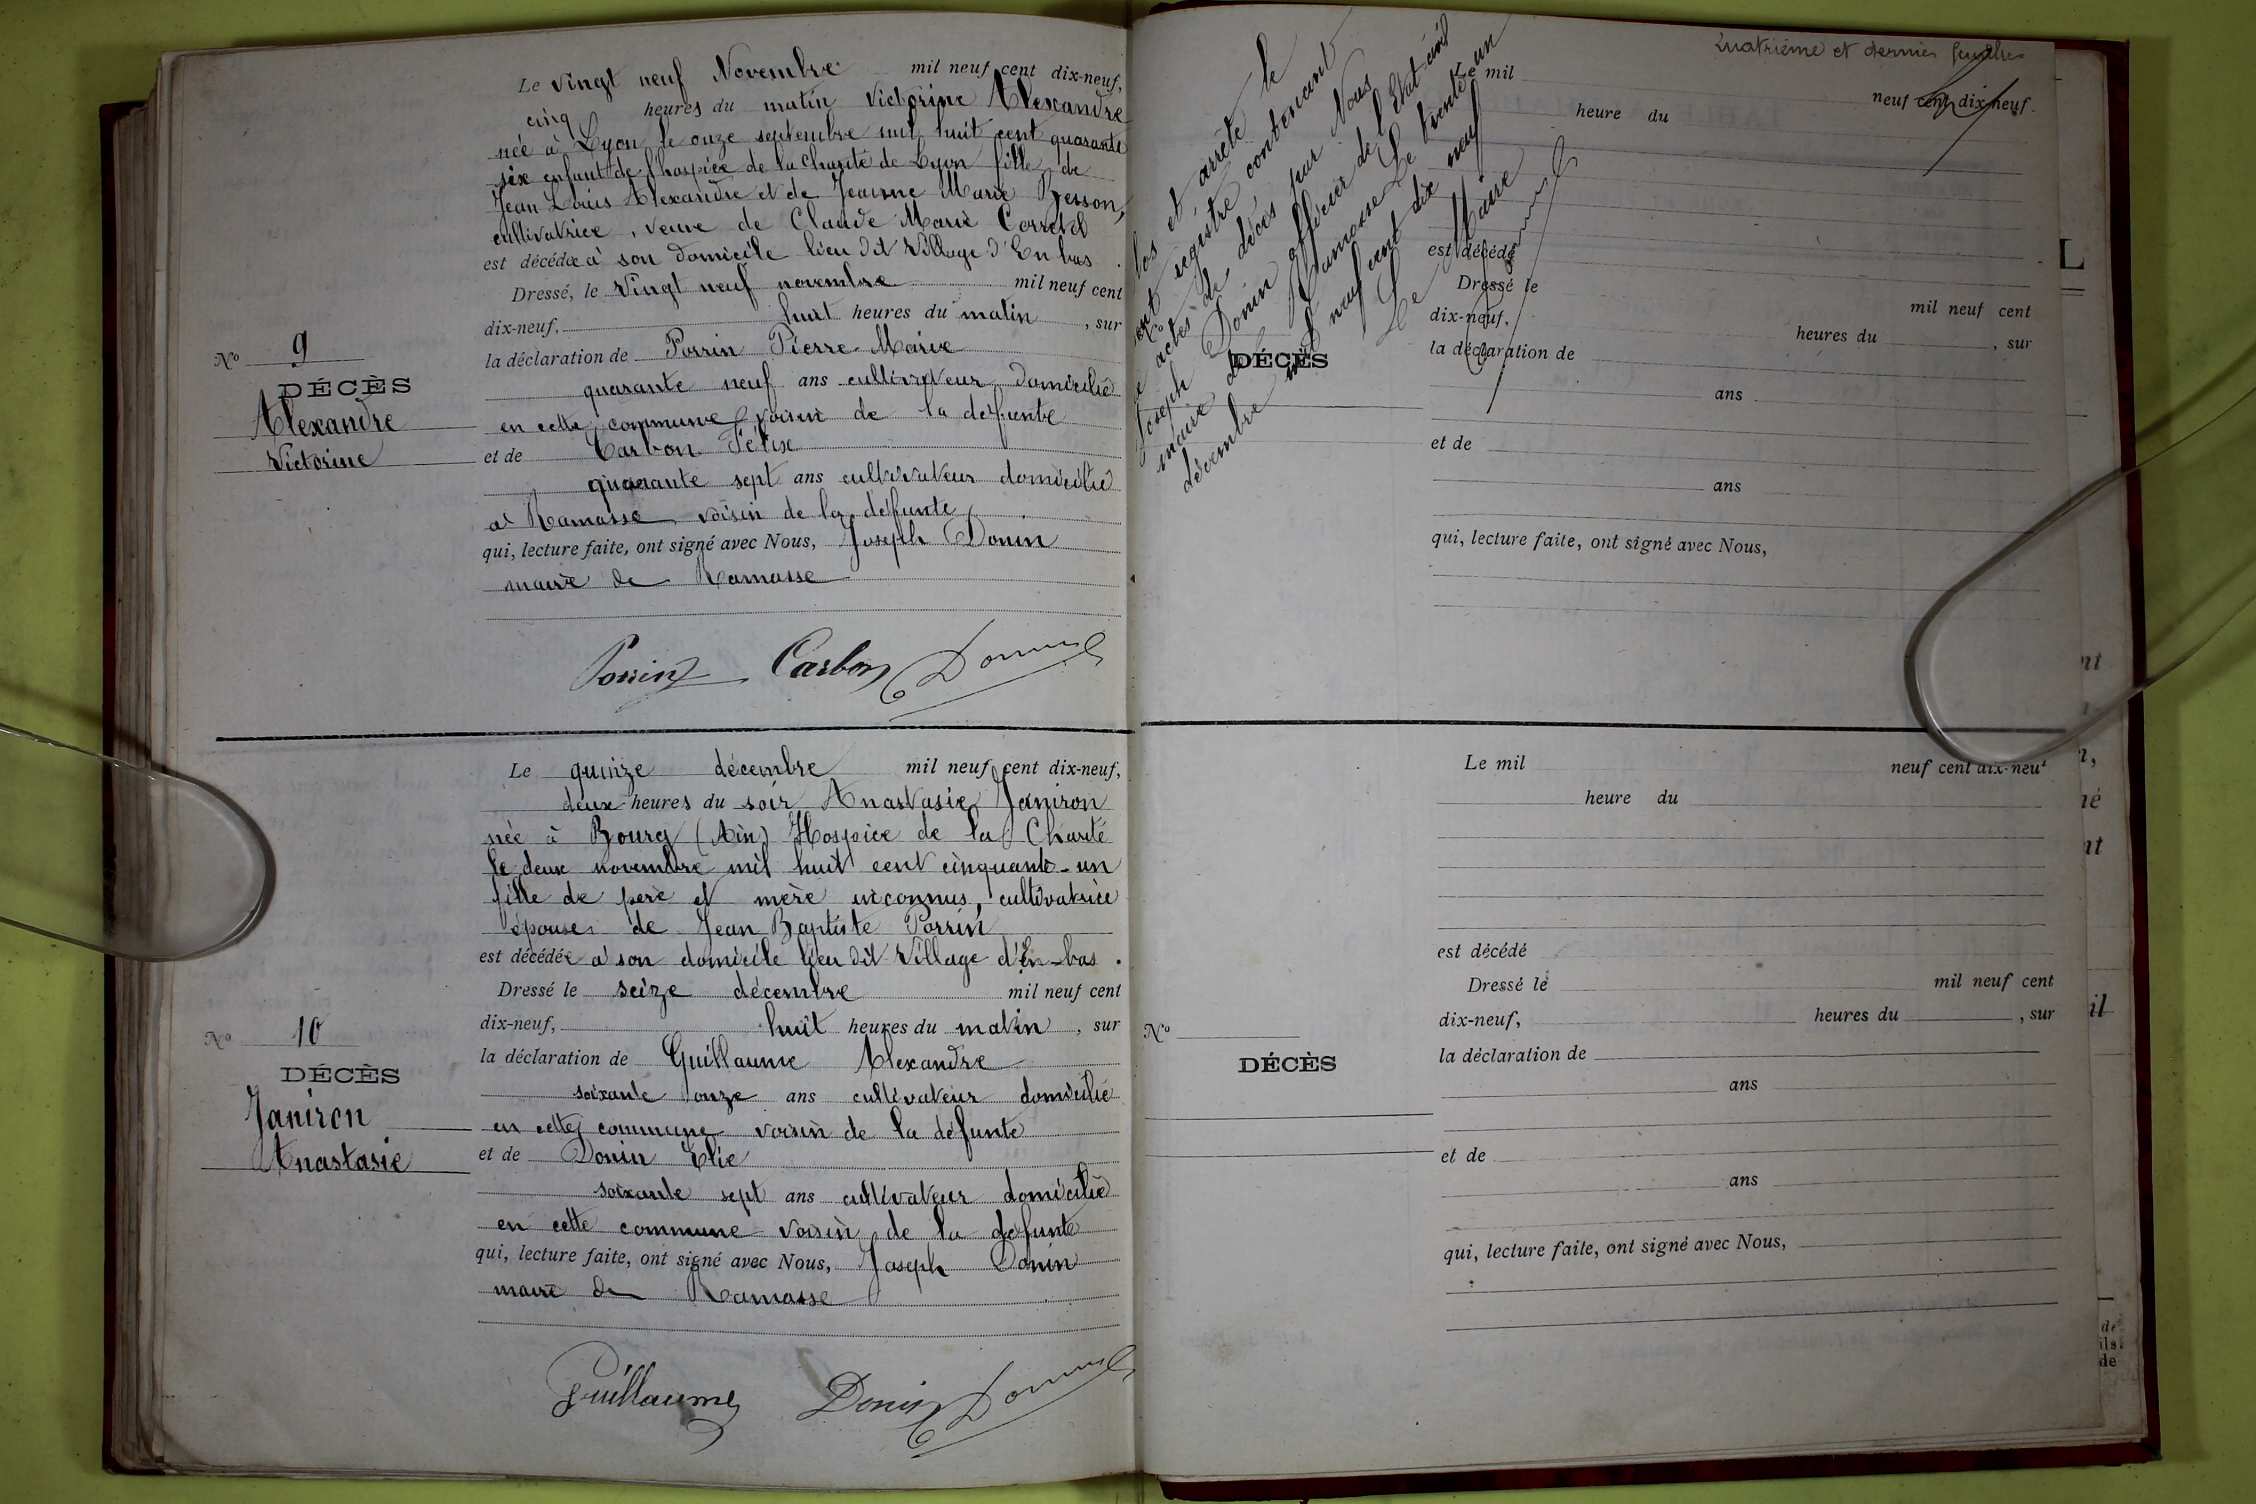 Le vingt neuf Novembre mil neuf cent dix-neuf,
cinq heures du matin Victorine Alexandre
née à Lyon le onze septembre mil huit cent quarante
six enfant de l'hospice de la Charité de Lyon fille de
Jean Louis Alexandre et de Jeanne Marie Besson,
cultivatrice, veuve de Claude Marie Corretel
est décédée à son domicile lieu dit Village d'En bas.
Dressé, le vingt neuf novembre mil neuf cent
dix-neuf, huit heures du matin, sur
la déclaration de Porrin Pierre-Marie
quarante neuf ans cultivateur domicilié
en cette commune voisin de la défunte
et de Carbon Félix
quarante sept ans cultivateur domicilié
à Ramasse voisin de la défunte
qui, lecture faite, ont signé avec Nous, Joseph Donin
maire de Ramasse
Porrin Carbon Donin
No 9
DÉCÈS
Alexandre
Victorine
Le quinze décembre mil neuf cent dix-neuf,
deux heures du soir Anastasie Janiron
née à Bourg (Ain) Hospice de la Charité
le deux novembre mil huit cent cinquante-un
fille de père et mère inconnus, cultivatrice
épouse de Jean Baptiste Porrin
est décédée à son domicile lieu dit Village d'En-bas.
Dressé le seize décembre mil neuf cent
dix-neuf, huit heures du matin, sur
la déclaration de Guillaume Alexandre
soixante onze ans cultivateur domicilié
en cette commune voisin de la défunte
et de Donin Élie
soixante sept ans cultivateur domicilié
en cette commune voisin de la défunte
qui, lecture faite, ont signé avec Nous, Joseph Donin
maire de Ramasse
Guillaume Donin Donin
No 10
DÉCÈS
Janiron
Anastasie
Quatrième et dernier feuillet
Clos et arrêté le
registre contenant
actes de décès par Nous
Joseph Donin officier de l'Etat civil
maire de Ramasse Le trente un
décembre mil neuf cent dix neuf
Le Maire
Donin
Le mil neuf cent dix-neuf
heure du
est décédé
Dressé le mil neuf cent
dix-neuf, heures du , sur
la déclaration de
ans
et de
ans
qui, lecture faite, ont signé avec Nous,
No
DÉCÈS
Le mil neuf cent dix-neuf
heure du
est décédé
Dressé le mil neuf cent
dix-neuf, heures du , sur
la déclaration de
ans
et de
ans
qui, lecture faite, ont signé avec Nous,
No
DÉCÈS